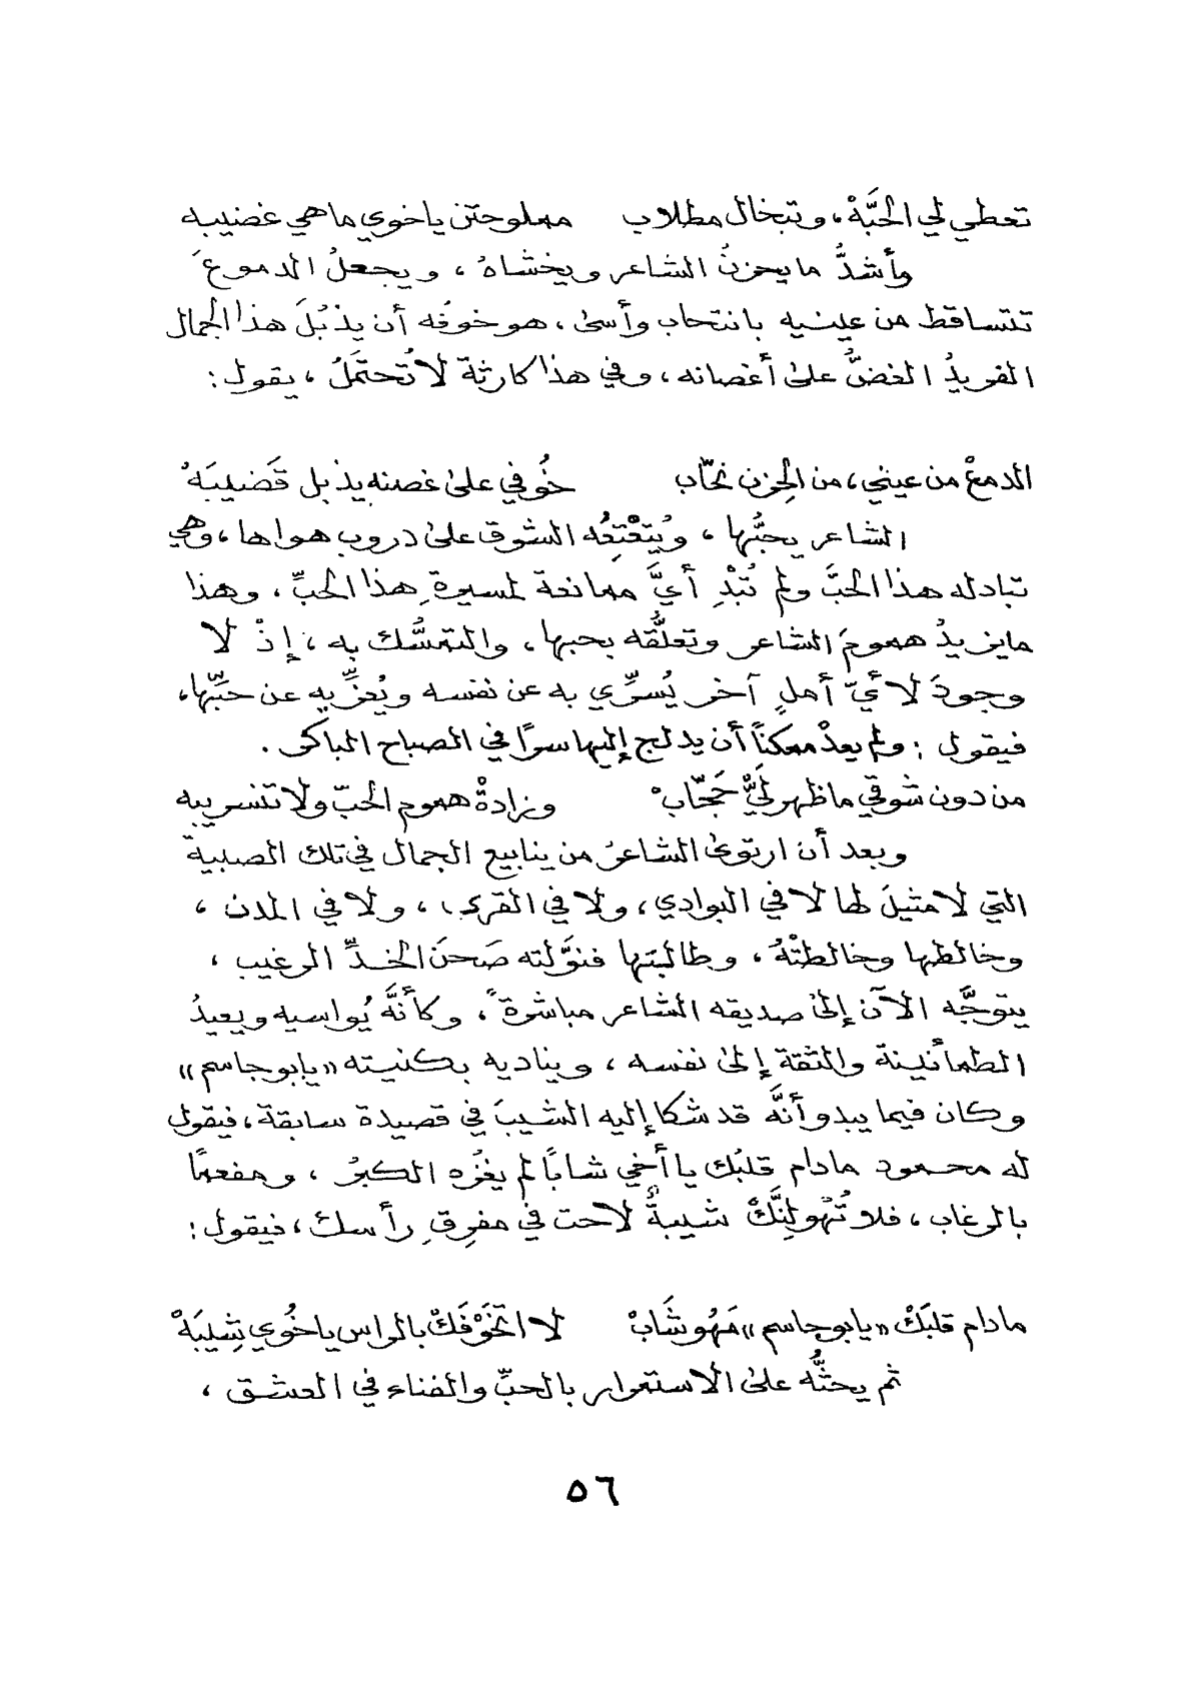 تعطي لي الحَبَّهْ، وتبخال مطلاب     مملوحتن ياخوي ماهي غضيبه
وأشدُّ ما يحزنُ الشاعر ويخشاهُ ، ويجعلُ الدموعَ
تتساقط من عينيه بانتحاب وأسىً ، هو خوفُه أن يذبُلَ هذا الجمال
الفريدُ الغضُّ على أغصانه ، وفي هذا كارثة لا تُحتمَلُ ، يقول :
الدمعْ من عيني ، من الحِزن نحّاب     خُوفي على غصنه يذبل قَضيبَهْ
الشاعر يحبُّها ، ويُتَعْتِعُه الشوق على دروب هواها ، وهي
تبادله هذا الحبَّ ولم تُبْدِ أيَّ ممانعة لمسيرةِ هذا الحبِّ ، وهذا
ما يزيدُ همومَ الشاعر وتعلُّقه بحبها ، والتمسُّك به ، إذْ لا
وجودَ لأيّ أملٍ آخر يُسرِّي به عن نفسه ويُعزِّيه عن حبِّها،
فيقول : ولم يعدْ ممكناً أن يدلج إليها سراً في الصباح الباكر .
من دون شوقي ما ظهر لَيْ حَجّابْ     وزادةْ هموم الحبّ ولا تنسريبه
وبعد أن ارتوى الشاعرُ من ينابيع الجمال في تلك الصبية
التي لا مثيلَ لها لا في البوادي ، ولا في القرى ، ولا في المدن ،
وخالطها وخالطتْهُ ، وطالبتها فنوَّلته صَحنَ الخدِّ الرغيب ،
يتوجَّه الآن إلى صديقه الشاعر مباشرةً ، وكأنَّه يُواسيه ويعيدُ
الطمأنينة والثقة إلى نفسه ، ويناديه بكنيته «يا بو جاسم»
وكان فيما يبدو أنَّه قد شكا إليه الشيبَ في قصيدة سابقة ، فيقول
له محمود مادام قلبُك يا أخي شاباً لم يغزُه الكبرُ ، ومفعماً
بالرغاب ، فلا تُهْولنَّكْ شيبةٌ لاحت في مفرِقِ رأسك ، فيقول :
مادام قلبَكْ «يا بو جاسم» مَهُو شَابْ     لا اتْخَوْفَكْ بالراس يا خُوي شِيبَهْ
ثم يحثُّه على الاستمرار بالحبِّ والفناء في العشق ،
٥٦